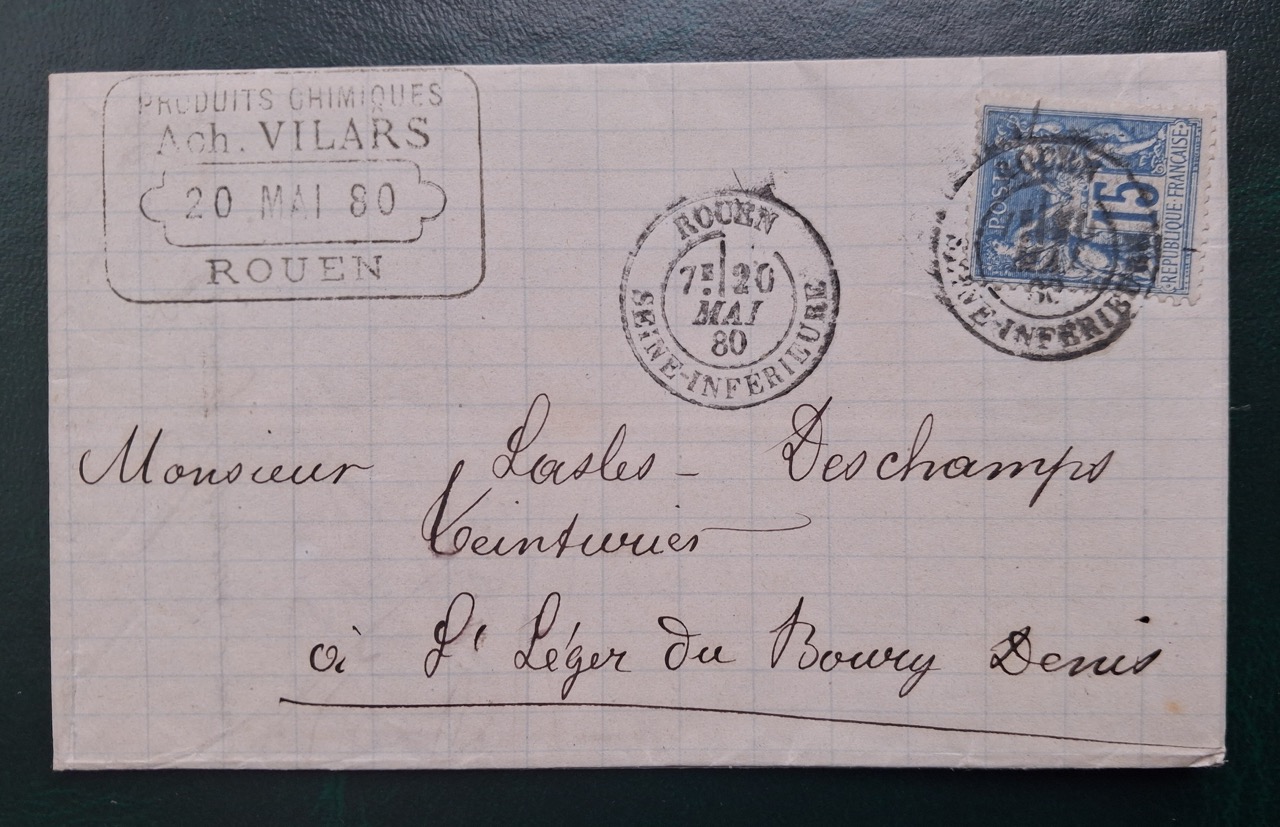 PRODUITS CHIMIQUES
Ach. VILARS
20 MAI 80
ROUEN
ROUEN
7E 20
MAI
80
SEINE-INFÉRIEURE
POSTES
15
REPUBLIQUE-FRANÇAISE
ROUEN
MAI
80
SEINE-INFÉRIEURE
Monsieur Lasles-Deschamps
Teinturier
à St Léger du Bourg Denis